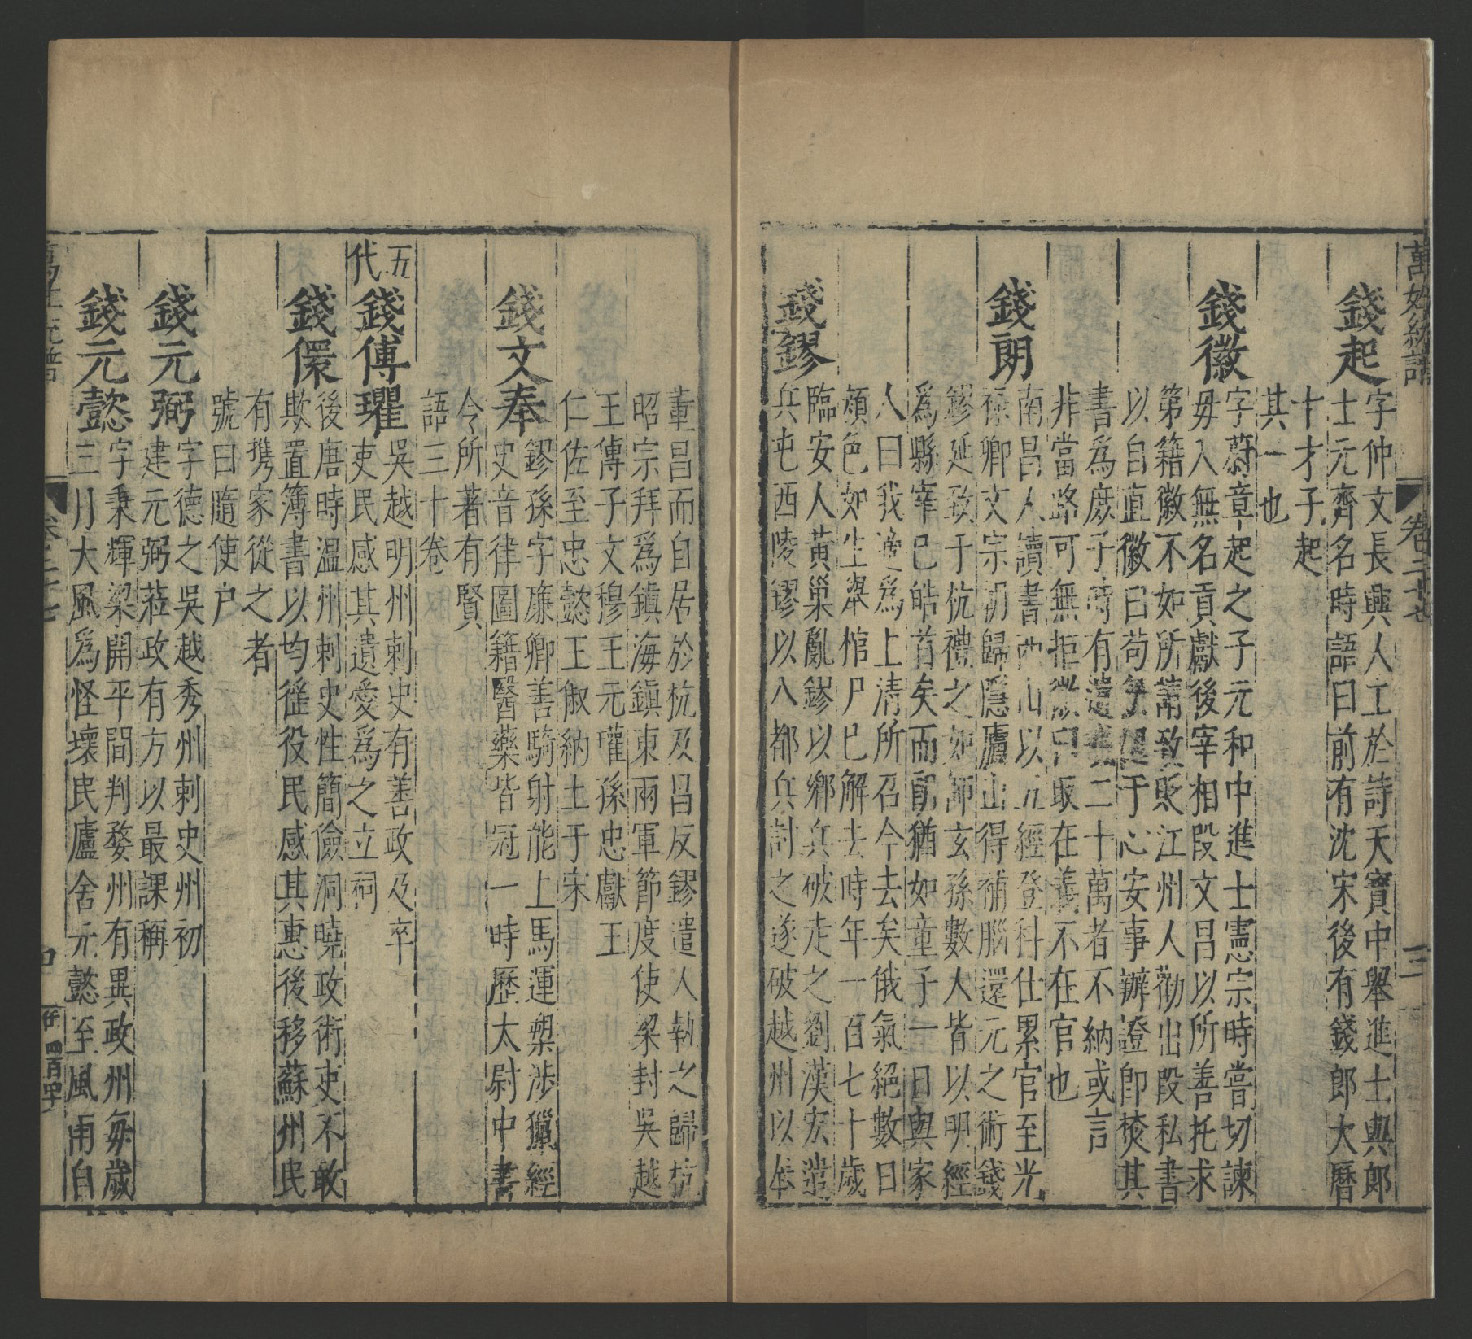 萬姓統譜
卷二十七
錢起
字仲文長興人工於詩天寶中舉進士與郎
士元齊名時語曰前有沈宋後有錢郎大曆
十才子起
其一也
錢徽
字蔚章起之子元和中進士憲宗時嘗切諫
毋入無名貢獻後宰相段文昌以所善托求
第籍徽不如所請致貶江州人勸出段私書
以自直徽曰苟無愧于心安事辦證卽焚其
書爲庶子時有遺
二十萬者不納或言
非當路可無拒徽曰取在義不在官也
錢朗
南昌人讀書西山以五經登科仕累官至光
祿卿文宗朝歸隱廬山得補腦還元之術錢
鏐延致于杭禮之如師玄孫數人皆以明經
爲縣宰已皓首矣而朗猶如童子一日與家
人曰我適爲上清所召今去矣俄氣絕數日
顏色如生舉棺尸已解去時年一百七十歲
錢鏐
臨安人黃巢亂鏐以鄉兵破走之劉漢宏遣
兵屯西陵鏐以八都兵討之遂破越州以本
董昌而自居於杭及昌反鏐遣人執之歸杭
昭宗拜爲鎮海鎮東兩軍節度使梁封吳越
王傳子文穆王元瓘孫忠獻王
仁佐至忠懿王俶納土于宋
錢文奉
鏐孫字廉卿善騎射能上馬運槊涉獵經
史音律圖籍醫藥皆冠一時歷太尉中書
令所著有賢
語三十卷
五代
錢傳瓘
吳越明州刺史有善政及卒
吏民感其遺愛爲之立祠
錢儇
後唐時溫州刺史性簡儉洞曉政術吏不敢
欺置簿書以均徭役民感其惠後移蘇州民
有攜家從之者
號曰隨使户
錢元弼
字德之吳越秀州刺史州初
建元弼蒞政有方以最課稱
錢元懿
字秉輝梁開平間判婺州有異政州毎歲
三月大風爲怪壞民廬舍元懿至風雨自
萬姓統譜
卷二十七